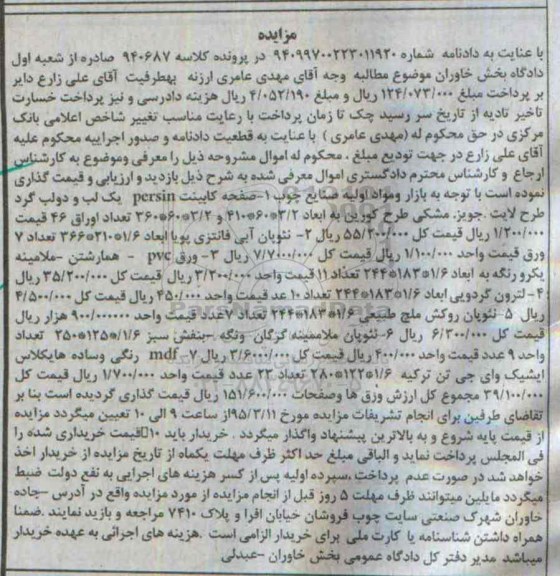 مزایده
با عنایت به دادنامه شماره ۹۴۰۹۹۷۰۰۲۲۳۰۱۱۹۲۰ در پرونده کلاسه ۹۴۰۶۸۷ صادره از شعبه اول
دادگاه بخش خاوران موضوع مطالبه وجه آقای مهدی عامری ارزنه بهطرفیت آقای علی زارع دایر
بر پرداخت مبلغ ۱۲۴/۰۷۳/۰۰۰ ریال و مبلغ ۴/۰۵۲/۱۹۰ ریال هزینه دادرسی و نیز پرداخت خسارت
تاخیر تادیه از تاریخ سر رسید چک تا زمان پرداخت با رعایت مناسب تغییر شاخص اعلامی بانک
مرکزی در حق محکوم له (مهدی عامری ) با عنایت به قطعیت دادنامه و صدور اجراییه محکوم علیه
آقای علی زارع در جهت تودیع مبلغ . محکوم له اموال مشروحه ذیل را معرفی وموضوع به کارشناس
ارجاع و کارشناس محترم دادگستری اموال معرفی شده به شرح ذیل بازدید و ارزیابی و قیمت گذاری
نموده است با توجه به بازار ومواد اولیه صنایع چوب ۱-صفحه کابینت persin یک لب و دولب گرد
طرح لایت .جویز. مشکی طرح کورین به ابعاد ۳/۲*۶۰*۴۱۰ و ۳/۲*۶۰*۳۶۰ تعداد اوراق ۴۶ قیمت
۱/۲۰۰/۰۰۰ ریال قیمت کل ۵۵/۲۰۰/۰۰۰ ریال ۲- نئوپان آبی فانتزی پویا ابعاد ۱/۶*۲۱۰*۳۶۶ تعداد ۷
ورق قیمت واحد ۱/۱۰۰/۰۰۰ ریال قیمت کل ۷/۷۰۰/۰۰۰ ریال ۳- ورق pvc - همارشتن -ملامینه
یکرو رنگه به ابعاد ۱/۶*۱۸۳*۲۴۴ تعداد ۱۱ قیمت واحد ۳/۲۰۰/۰۰۰ ریال قیمت کل ۳۵/۲۰۰/۰۰۰ ریال
۴- لترون گردویی ابعاد ۱/۶*۱۸۳*۲۴۴ تعداد ۱۰ عد قیمت واحد ۴۵۰/۰۰۰ ریال قیمت کل ۴/۵۰۰/۰۰۰
ریال ۵-نئوپان روکش ملچ طبیعی ۱/۶*۱۸۳*۲۴۴ تعداد ۷عدد قیمت واحد ۹۰۰/۰۰۰۰۰۰ هزار ریال
قیمت کل ۶/۳۰۰/۰۰۰ ریال ۶-نئوپان ملاممینه گرگان ونگه -بنفش سبز ۱/۶*۱۲۵*۲۵۰ تعداد
واحد ۹ عدد قیمت واحد ۴۰۰/۰۰۰ ریال قیمت کل ۳/۶۰۰/۰۰۰ ریال ۷-mdf رنگی وساده هایگلاس
ایشیک وای جی تن ترکیه ۱/۶*۱۲۲*۲۸۰ تعداد ۲۳ عدد قیمت واحد ۱/۷۰۰/۰۰۰ ریال قیمت کل
۳۹/۱۰۰/۰۰۰ مجموع کل ارزش ورق ها وصفحات ۱۵۱/۶۰۰/۰۰۰ ریال قیمت گذاری گردیده است بنا بر
تقاضای طرفین برای انجام تشریفات مزایده مورخ ۹۵/۳/۱۱از ساعت ۹ الی ۱۰ تعیین میگردد مزایده
از قیمت پایه شروع و به بالاترین پیشنهاد واگذار میگردد . خریدار باید ۱۰قیمت خریداری شده را
فی المجلس پرداخت نماید و الباقی مبلغ حد اکثر ظرف مهلت یکماه از تاریخ مزایده از خریدار اخذ
خواهد شد در صورت عدم پرداخت ،سپرده اولیه پس از کسر هزینه های اجرایی به نفع دولت ضبط
میگردد مایلین میتوانند ظرف مهلت ۵ روز قبل از انجام مزایده از مورد مزایده واقع در آدرس -جاده
خاوران شهرک صنعتی سایت چوب فروشان خیابان افرا و پلاک ۷۴۱۰ مراجعه و بازید نمایند .ضمنا
همراه داشتن شناسنامه یا کارت ملی برای خریدار الزامی است .هزینه های اجرائی به عهده خریدار
میباشد مدیر دفتر کل دادگاه عمومی بخش خاوران -عبدلی